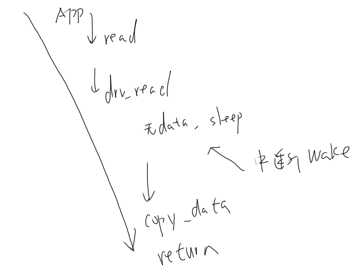 APP
read
drv_read
无data, sleep
中断 wake
copy_data
return